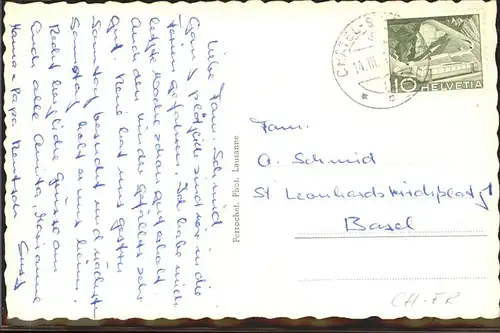 Liebe Fam. Schmid
Ganz plötzlich sind wir in die
Ferien gefahren. Ich habe mich
letzte Woche schon gut erholt
und den Kinder gefällts sehr
gut. René hat uns gestern
Sonntag besucht und nächsten
Samstag holt er uns heim.
Recht herzliche Grüsse an
Euch alle Anita, Marianne
Mama + Papa
Perrochet. Phot. Lausanne.
CHATEL-S
14. III.
10 HELVETIA
Fam.
A. Schmid
St Leonhardskirchplatz 1
Basel
CH-FR